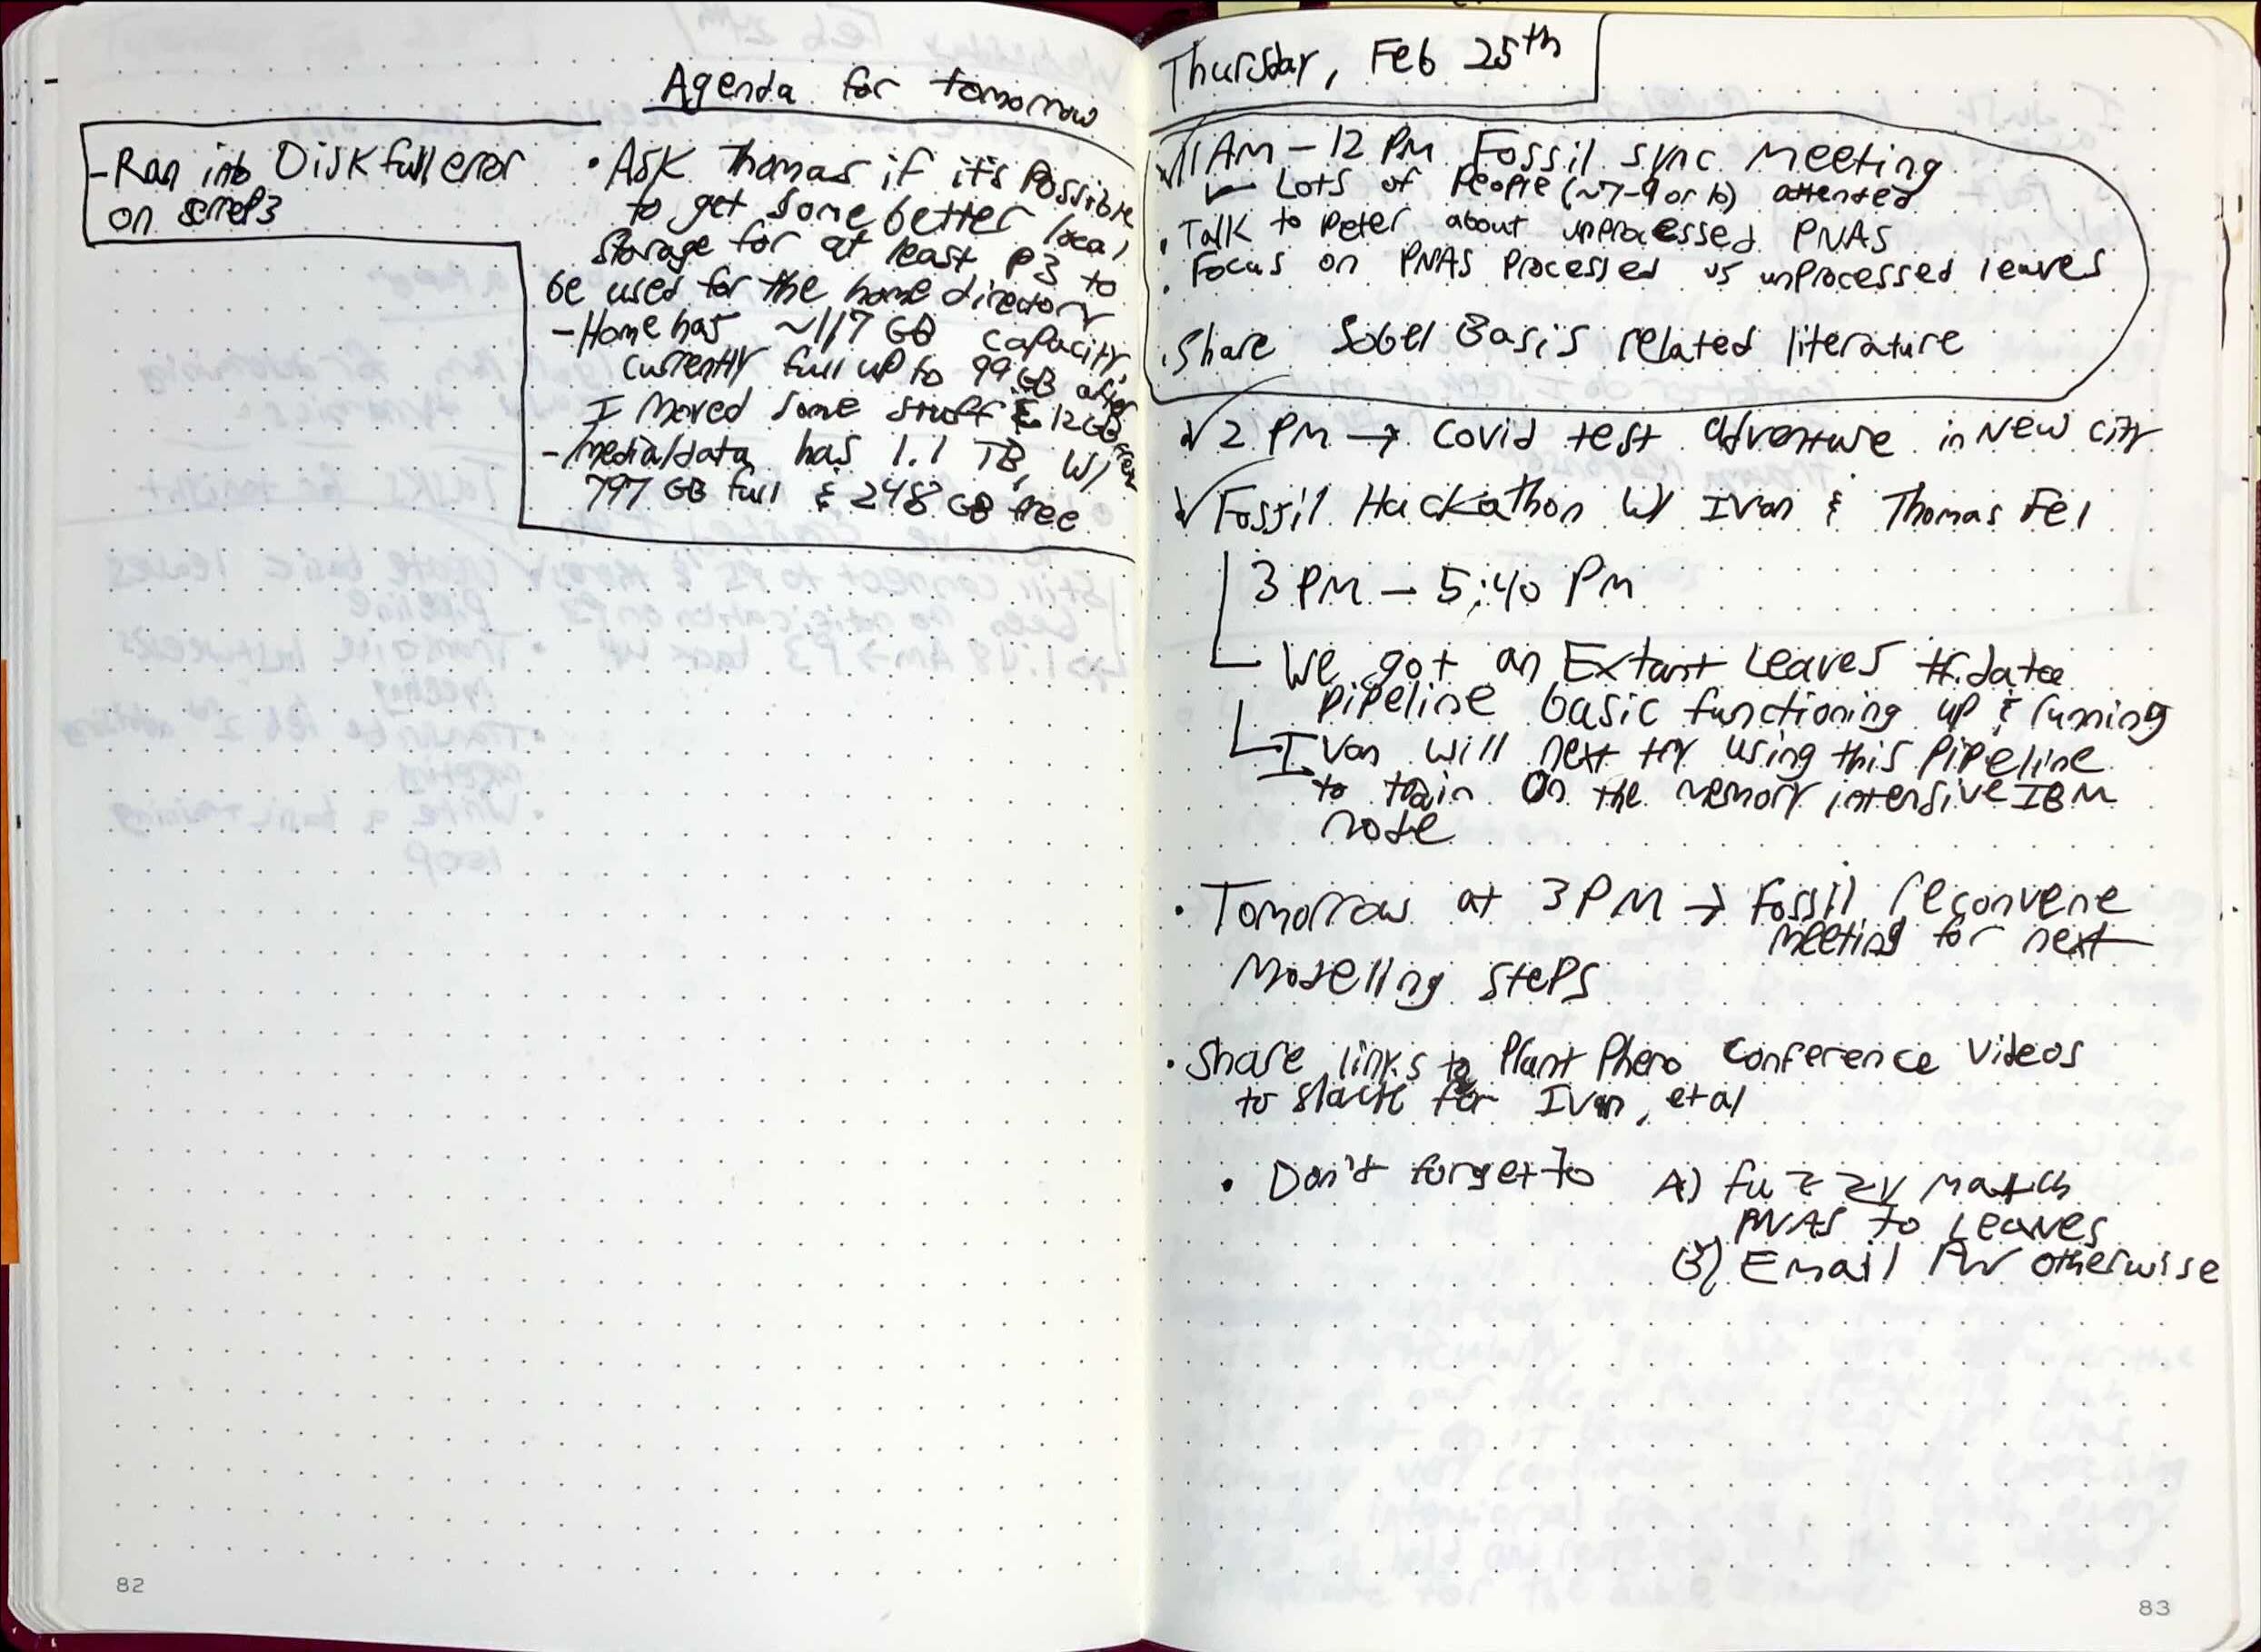 Agenda for tomorrow
-Ran into Disk full error
on serrep3
• Ask Thomas if it's Possible
to get some better local
storage for at least P3 to
be used for the home directory
- Home has ~117 GB capacity,
currently full up to 99 GB after
I moved some stuff & 12GB
- /media/data has 1.1 TB, W/
797 GB full & 248 GB free
82
Thursday, Feb 25th
11 AM - 12 PM Fossil sync Meeting
Lots of People (~7-9 or 10) attended
• Talk to Peter about unprocessed PNAS
• Focus on PNAS Processed vs unprocessed leaves
• Share Sobel Basis related literature
2 PM → Covid test adventure in New City
Fossil Hackathon W/ Ivan & Thomas Fel
3 PM - 5:40 PM
We got an Extant Leaves tf.data
Pipeline basic functioning up & running
Ivan will next try using this Pipeline
to train on the memory intensive IBM
node
• Tomorrow at 3 PM → Fossil reconvene
meeting for next
Modelling steps
• Share links to Plant Pheno Conference Videos
to slack for Ivan, et al
• Don't forget to A) fuzzy match
PNAS to Leaves
B) Email PW otherwise
83